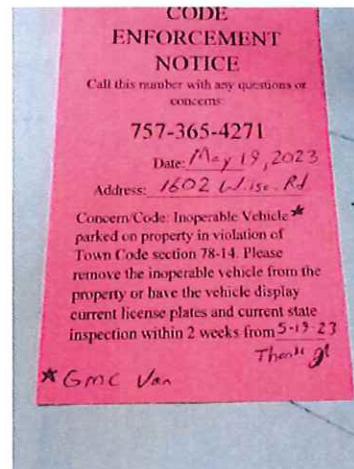 CODE
ENFORCEMENT
NOTICE
Call this number with any questions or
concerns:
757-365-4271
Date: May 19, 2023
Address: 1602 Wise Rd
Concern/Code: Inoperable Vehicle *
parked on property in violation of
Town Code section 78-14. Please
remove the inoperable vehicle from the
property or have the vehicle display
current license plates and current state
inspection within 2 weeks from 5-19-23
Thank
* GMC Van